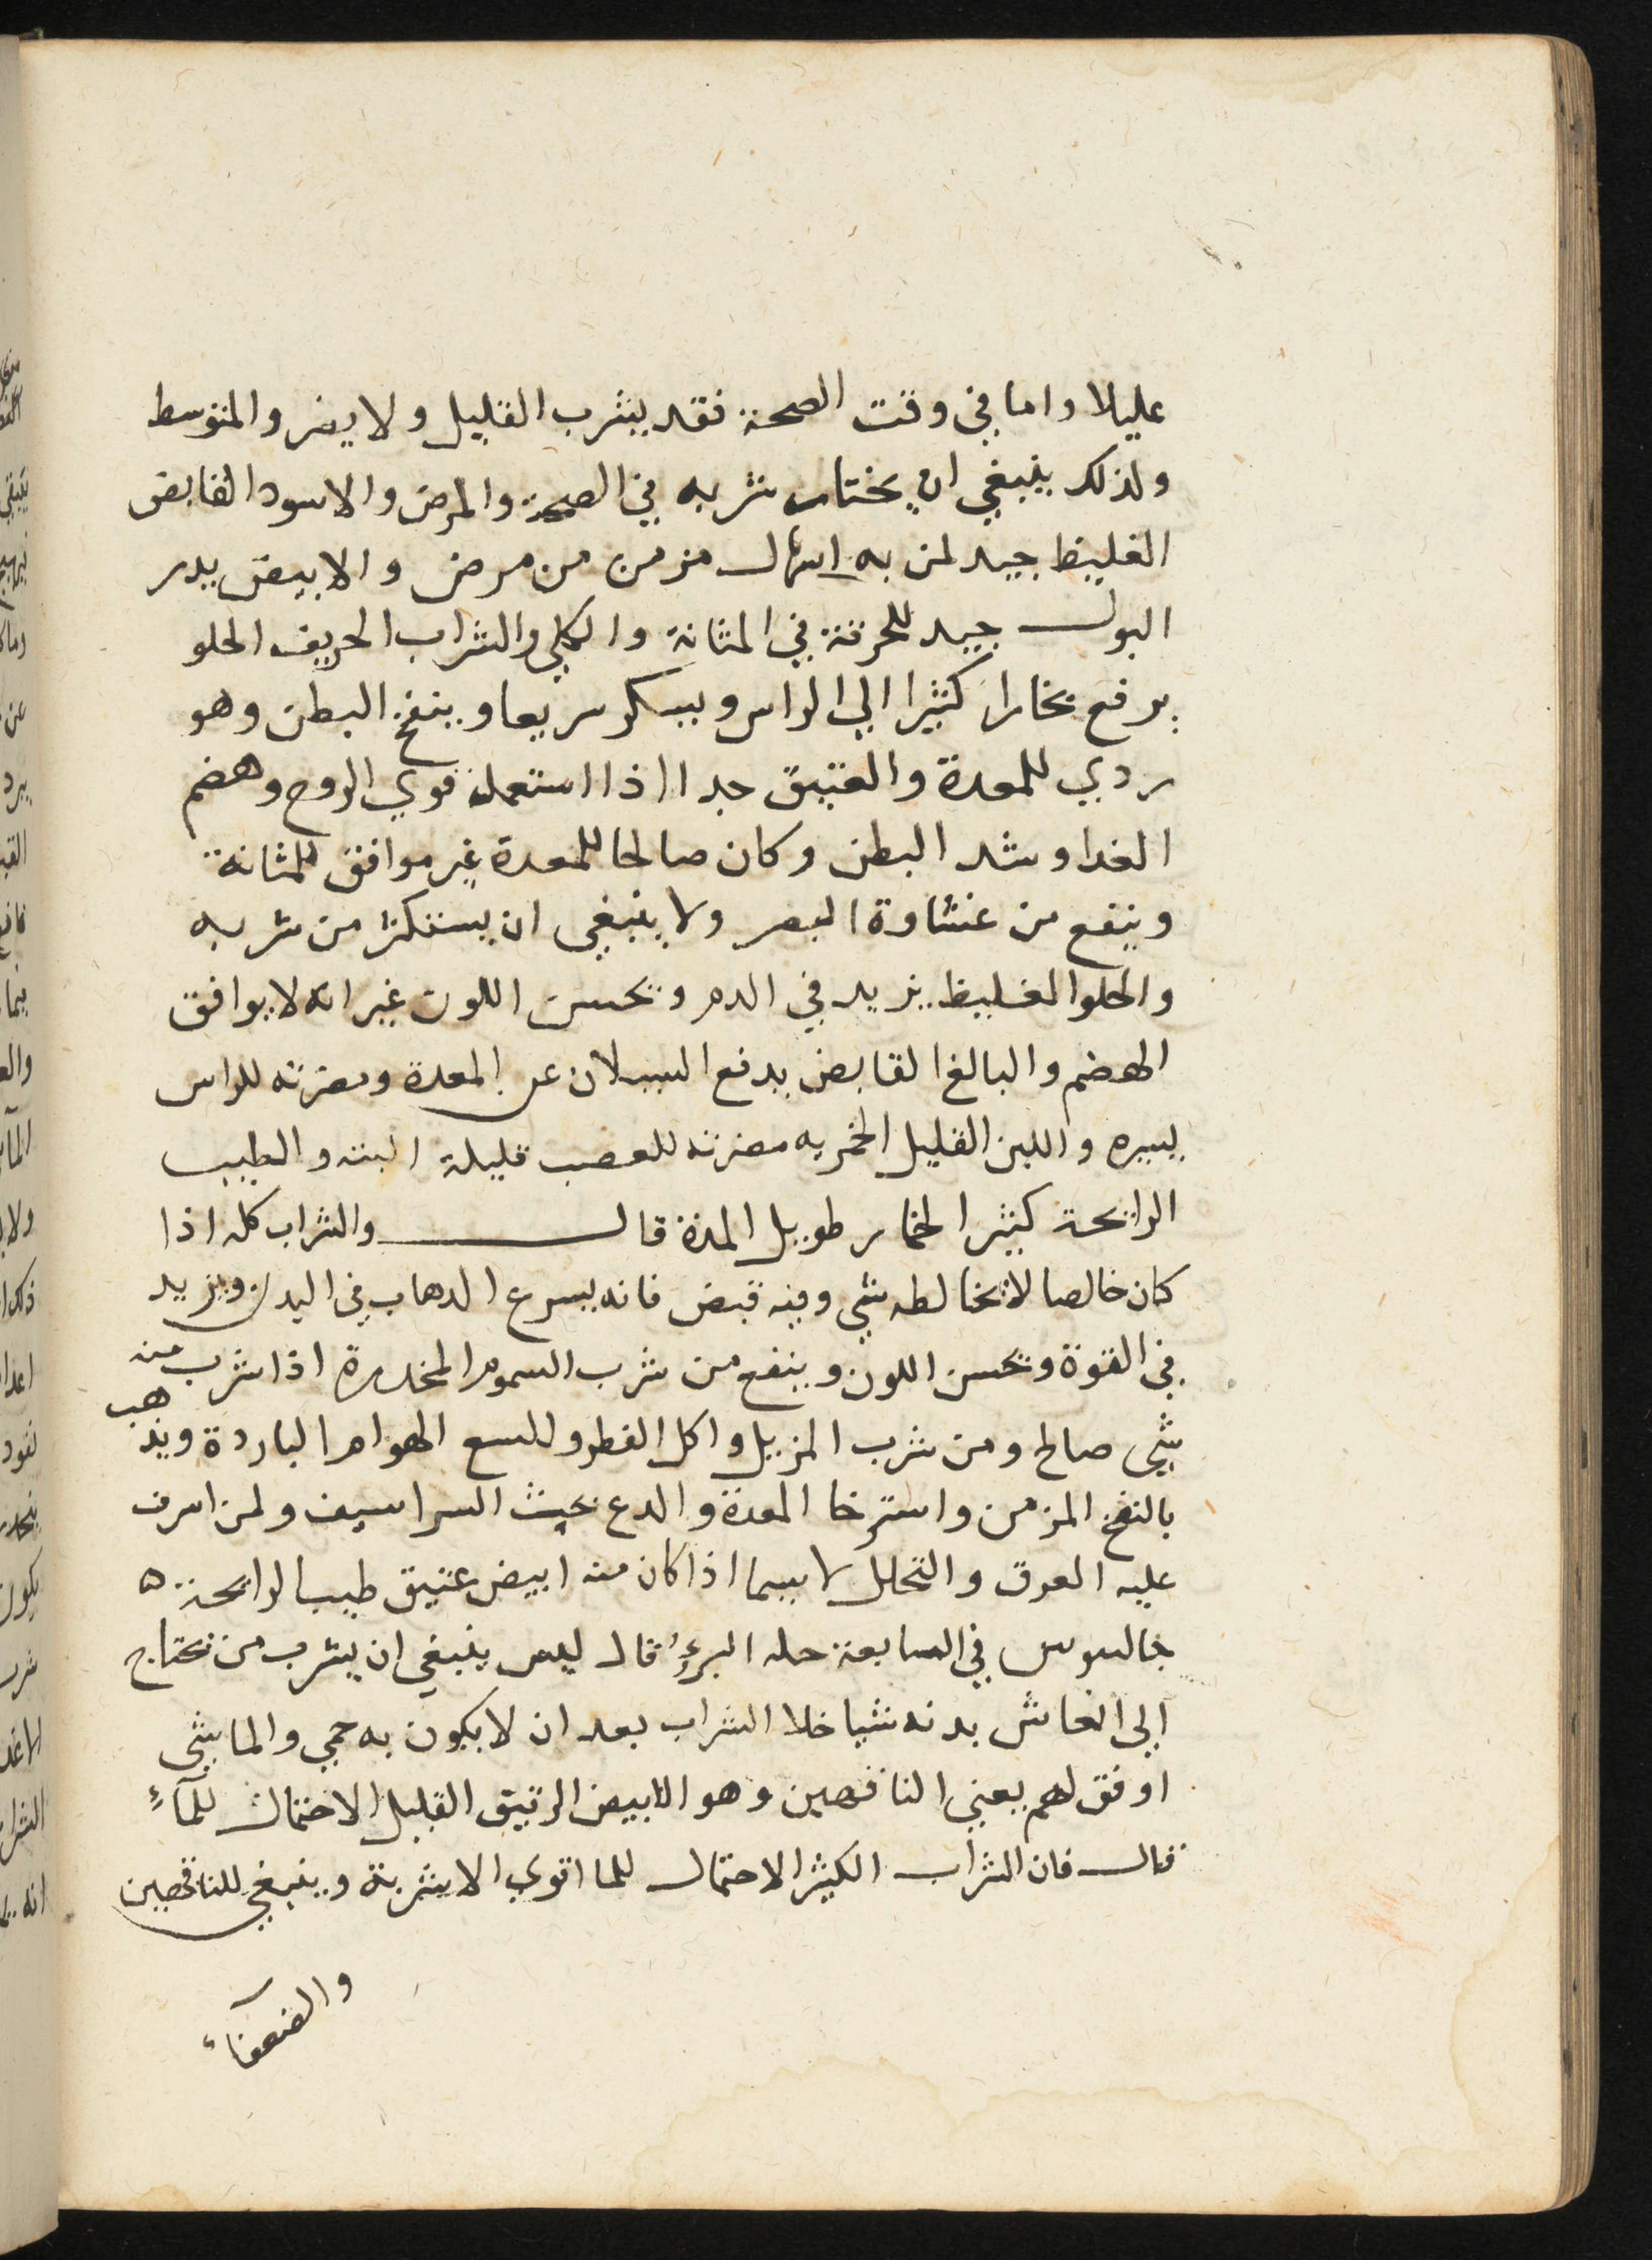 عليلا واما في وقت الصحة فقد يشرب القليل ولا يضر والمتوسط
ولذلك ينبغي ان يختار شربه في الصحة والمرض والاسود القابض
الغليظ جيد لمن به اسهال مزمن من مرض والابيض يدر
البول جيد للحرقة في المثانة والكلي والشراب الحريف الحلو
يرفع بخارا كثيرا الي الراس ويسكر سريعا وينفخ البطن وهو
ردي للمعدة والعتيق جدا اذا استعمل قوي الروح وهضم
الغدا وشد البطن وكان صالحا للمعدة غير موافق للمثانة
وينفع من غشاوة البصر ولا ينبغي ان يستكثر من شربه
والحلو الغليظ يزيد في الدم ويحسن اللون غير انه لا يوافق
الهضم والبالغ القابض يدفع السيلان عن المعدة ومضرته للراس
يسيره واللين القليل الخمريه مضرته للعصب قليلة البته والطيب
الرايحة كثير الخمار طويل المدة قال والشراب كله اذا
كان خالصا لا يخالطه شي وفيه قبض فانه يسرع الدهاب في البدن ويزيد
في القوة ويحسن اللون وينفع من شرب السموم المخدرة اذا شرب منه
شي صالح ومن شرب المزيل واكل الفطر وللسع الهوام الباردة ويذهب
بالنفخ المزمن واسترخا المعدة والدع تحت الشراسيف ولمن اسرف
عليه العرق والتحلل لا سيما اذا كان منه ابيض عتيق طيب الرايحة ه
جالينوس في السابعة حيلة البرء قال ليس ينبغي ان يشرب من يحتاج
الي انعاش بدنه شيا خلا الشراب بعد ان لا يكون به حمي والما شي
اوفق لهم يعني الناقهين وهو الابيض الرقيق القليل الاحتمال للمآء
قال فان الشراب الكثير الاحتمال للما اقوي الاشربة وينبغي للناقهين
والضعفآء